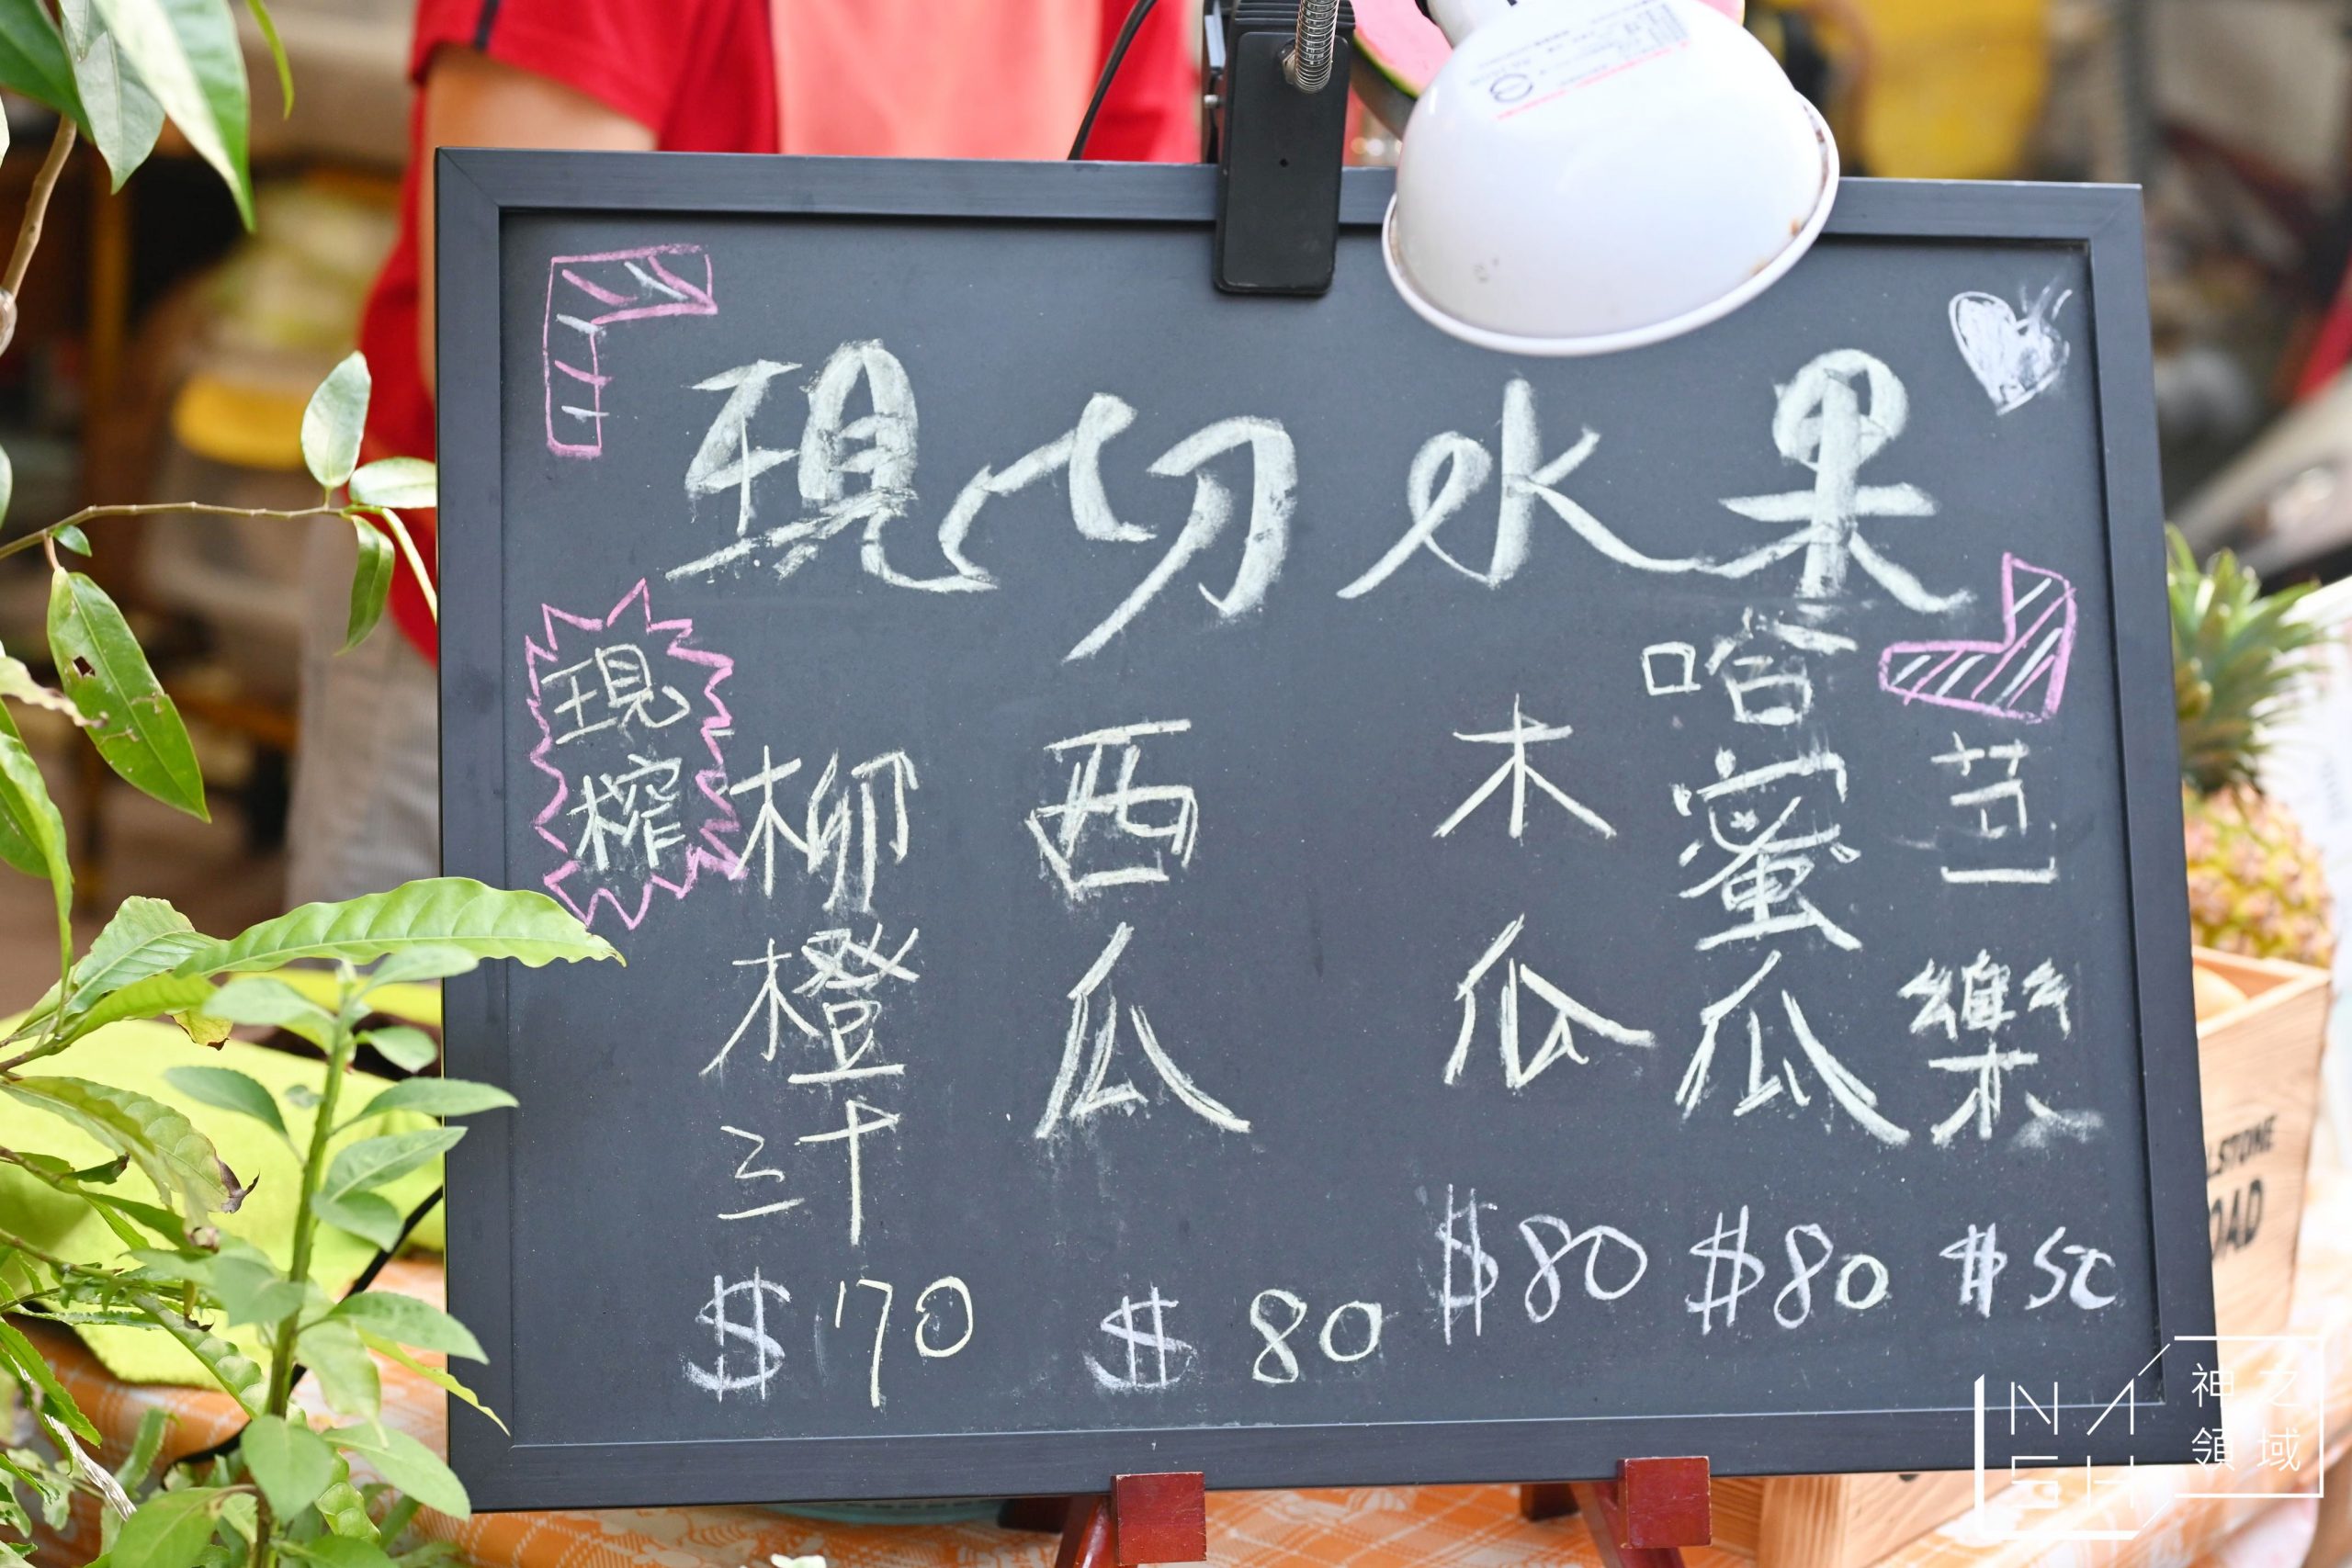 現切水果
現榨
柳橙汁
$70
西瓜
$80
木瓜
$80
哈蜜瓜
$80
芭樂
$50
LSTONE
OAD
NASH
神之領域